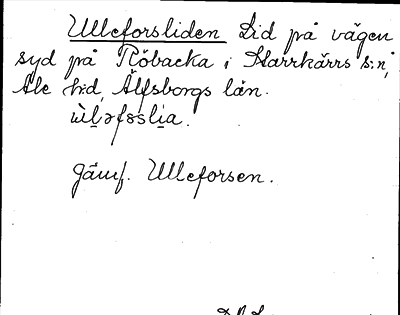 Ulleforsliden Lid på vägen
syd på Röbacka i Starrkärrs s:n,
Ale h:d, Älfsborgs län.
ùl̠əfɷsli̠a.
Jämf. Ulleforsen.